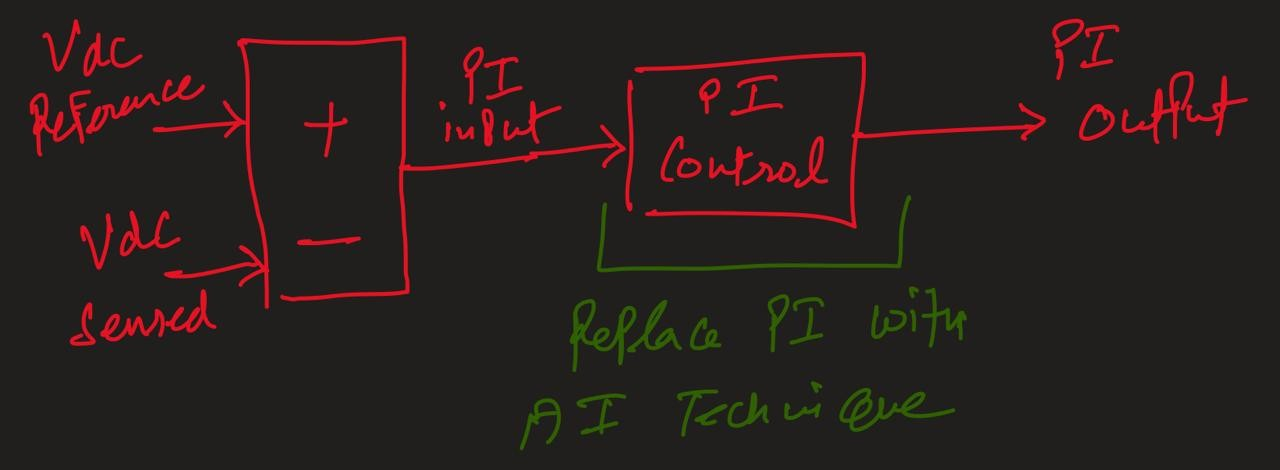 Vdc
Reference
+
-
Vdc
Sensed
PI
input
PI
Control
PI
Output
Replace PI with
AI Technique